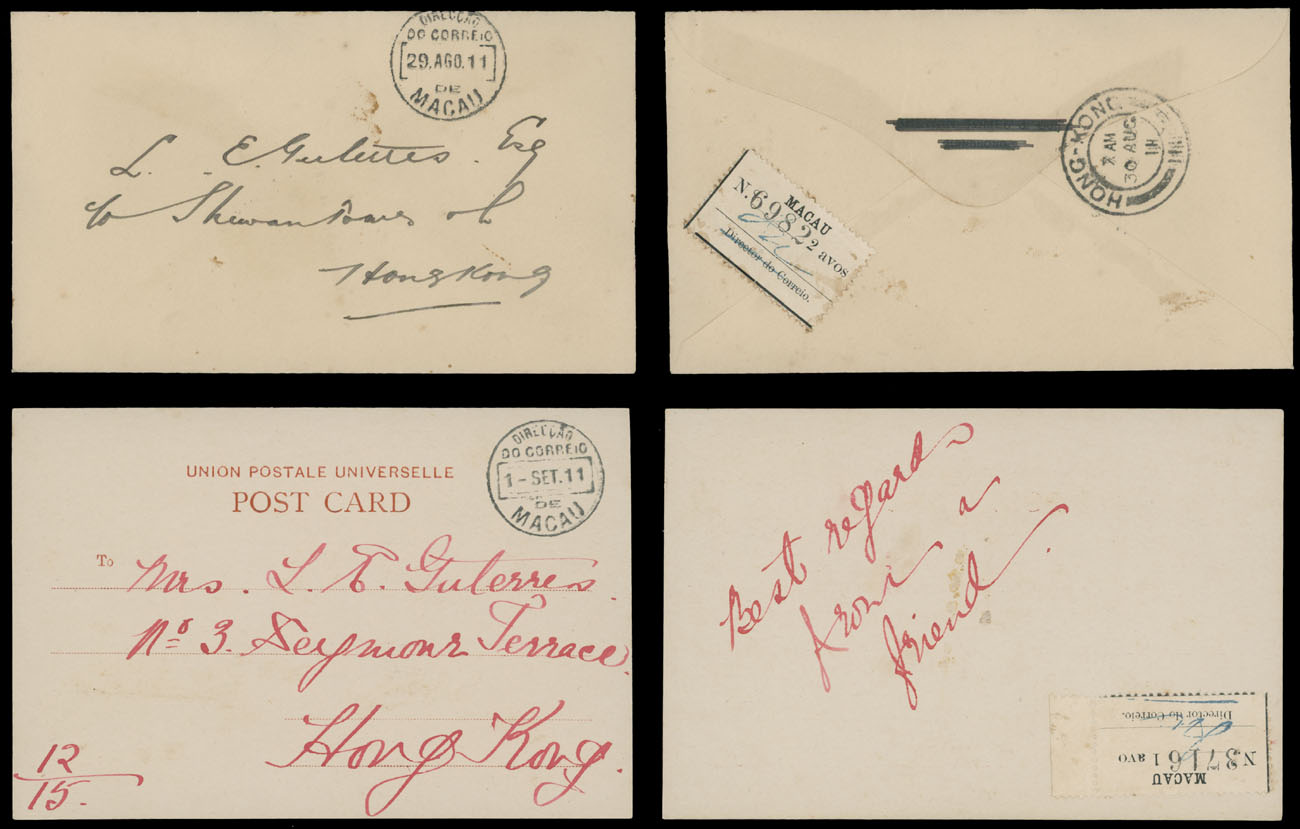 DIRECÇÃO
DO CORREIO
29.AGO.11
DE
MACAU
L. E. Guterres Esq
c/o Shewan Tomes &
Hong Kong
HONG-KONG
7 AM
30 AUG
11
MACAU
N. 6982 2 avos
Director do Correio.
DIRECÇÃO
DO CORREIO
1-SET.11
DE
MACAU
UNION POSTALE UNIVERSELLE
POST CARD
To Mrs. L. E. Guterres.
No 3. Seymour Terrace,
Hong Kong.
12
15.
Best regards
from a
friend.
MACAU
N 3716 1 avo
Director do Correio.